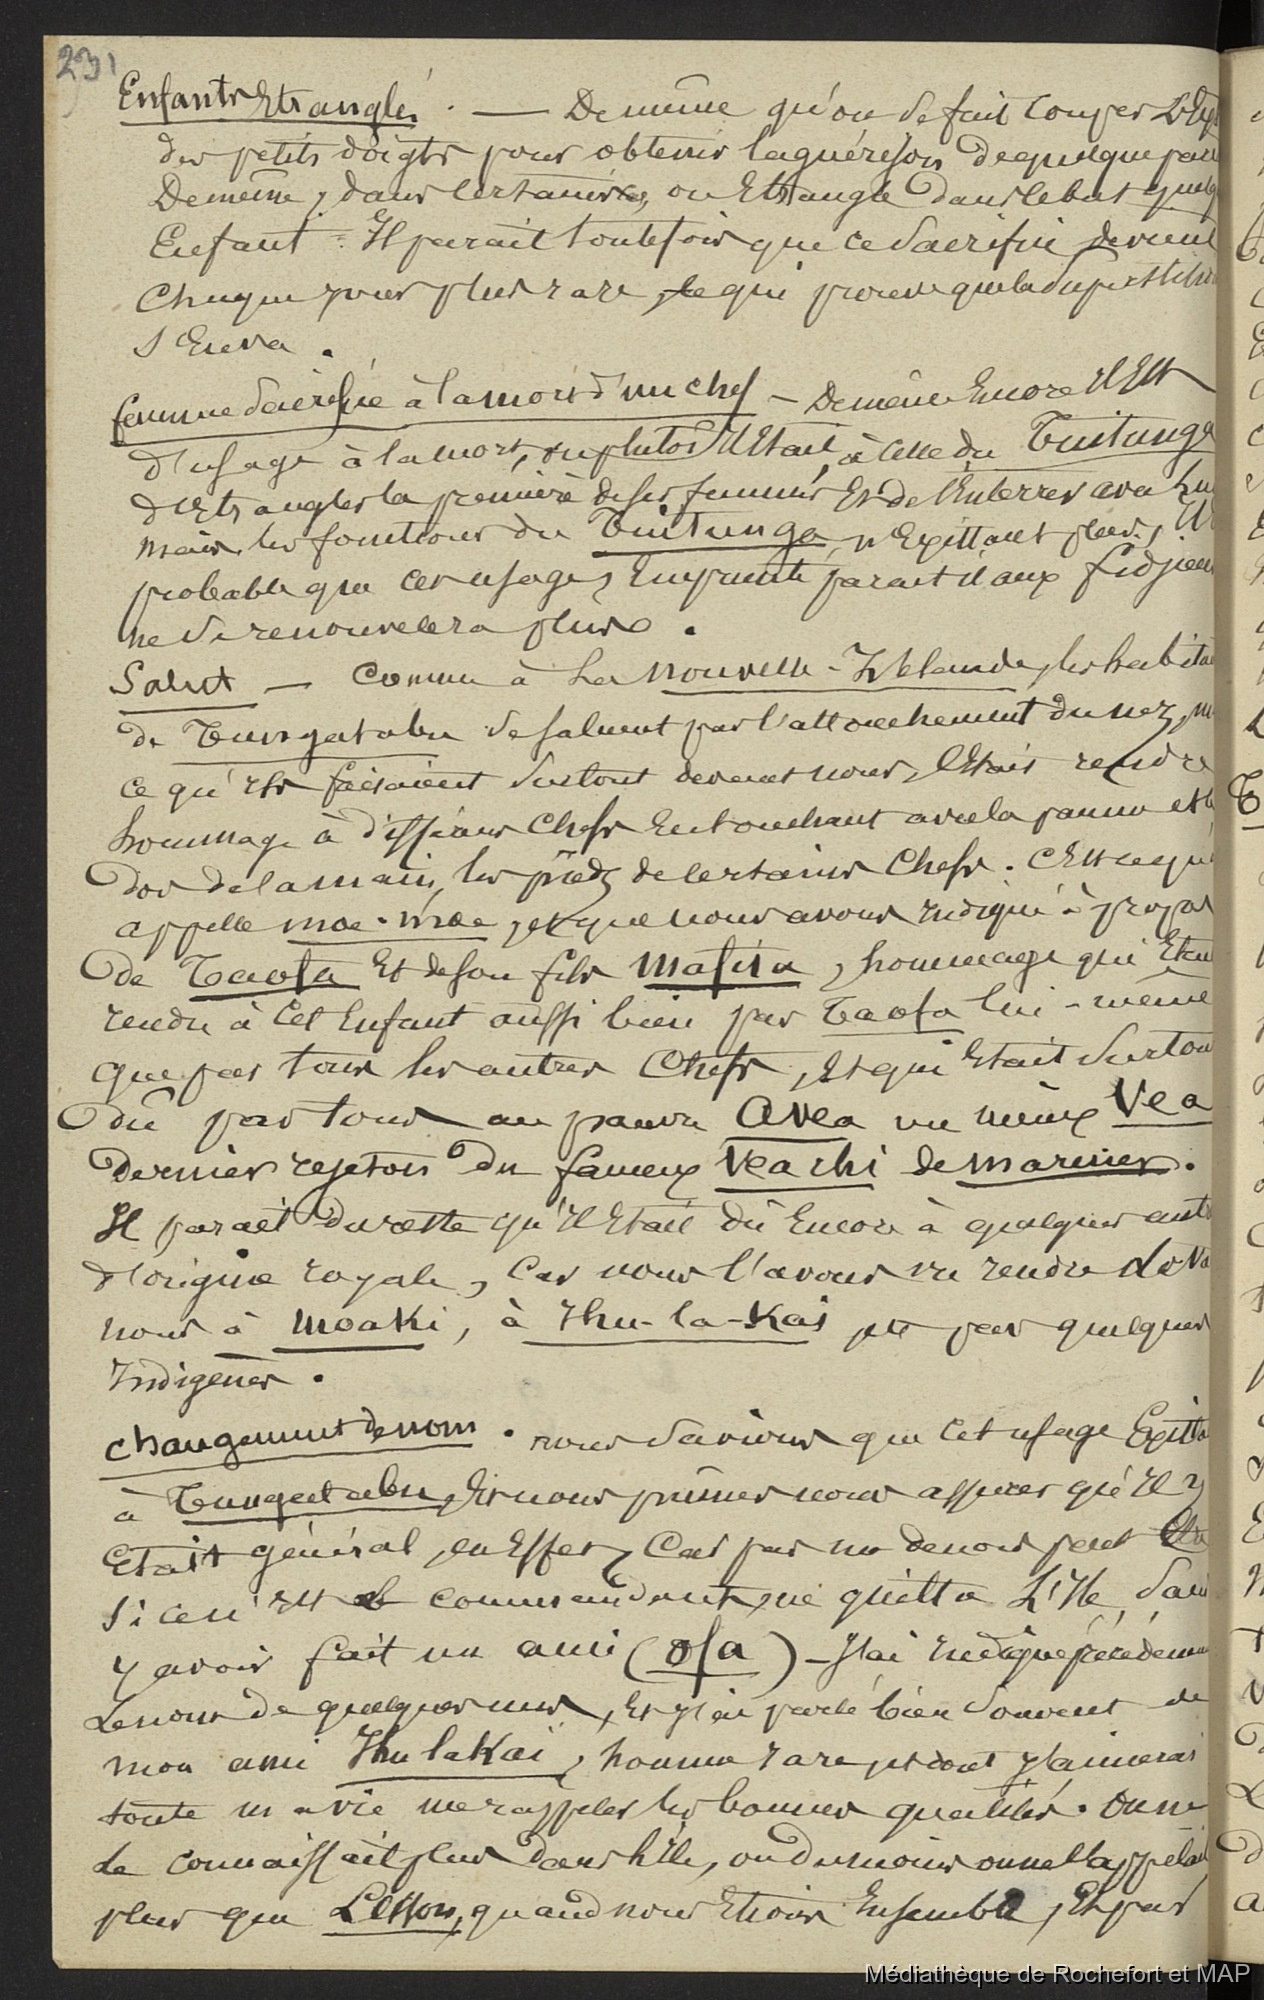 231
Enfants Etranglés. — De même qu'on se fait couper
des petits doigts pour obtenir la guérison de quelque
De même, dans certains, on Etrangle dans le but quelq
Enfant. Il parait toutefois que ce Sacrifice devient
Chaque jour plus rare, ce qui prouve que la Superstition
S'En va.
femme Sacrifiée à la mort d'un chef — De même Encore Il Est
d'usage à la mort, ou plutôt Il Etait, à celle du Tuitunga
d'Etrangler la première de ses femmes Et de l'Enterrer avec lui
mais les fonctions du Tuitunga n'Existant plus, Il
probable que cet usage, Emprunté parait il aux fidjiens
ne Se renouvelera plus.
Salut — Comme à La nouvelle-Zélande, les habitan
de Tungatabu Se saluent par l'attouchement du nez, m
ce qu'Ils faisaient Surtout devant nous, c'Etait rendre
hommage à Chefs En touchant avec la paume et le
Dos de la main, les pieds de certains Chefs. C'Est ce qu'
appelle moe-moe, et que nous avons Indiqué à propos
De Taofa Et de son fils Mafita, hommage qui Etait
rendu à Cet Enfant aussi bien par Taofa lui-même
que par tous les autres Chefs, Et qui Etait Surtout
Dû par tous au pauvre Avea ou mieux Vea
Dernier rejeton Du fameux Veachi de Mariner.
Il parait Du reste qu'Il Etait Dû Encore à quelques autr
d'origine royale, Car nous l'avons vu rendre
nous à Moaki, à Ihu-la-Kaï, par quelques
Indigènes.
Changement de nom. nous Savions que Cet usage Exista
à Tungatabu, Et nous pûmes nous assurer qu'Il y
Etait général, en Effet, Car pas un de nous peut
Si ce n'Est le commandant, ne quitta L'Ile, Sans
y avoir fait un ami (Ofa) — J'ai Indiqué précédemm
Le nom de quelques uns, Et j'ai parlé bien Souvent de
mon ami Ihu laKaï, homme rare, et dont J'aimerai
toute ma vie me rappeler les bonnes qualités. On ne
le connaissait plus dans l'Ile, ou du moins on ne l'appelait
plus que Lesson, quand nous Etions Ensemble, Et par
Médiathèque de Rochefort et MAP